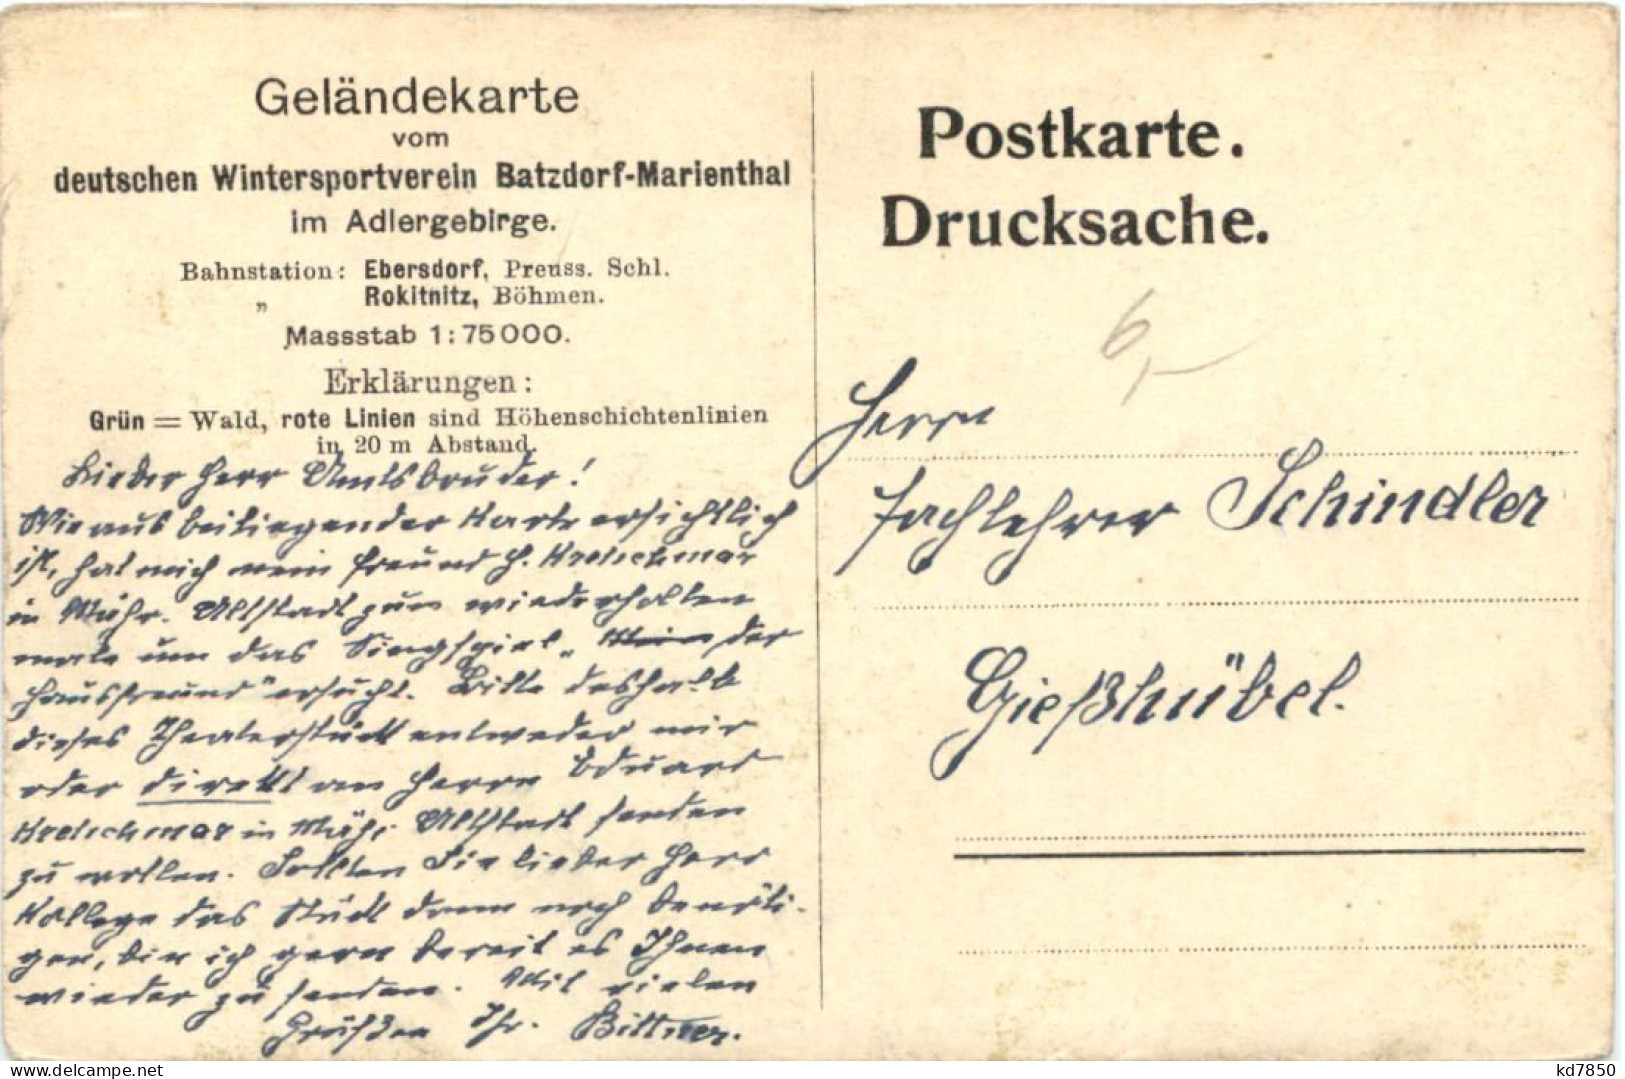 Geländekarte
vom
deutschen Wintersportverein Batzdorf-Marienthal
im Adlergebirge.
Bahnstation: Ebersdorf, Preuss. Schl.
„ Rokitnitz, Böhmen.
Massstab 1:75000.
Erklärungen:
Grün = Wald, rote Linien sind Höhenschichtenlinien
in 20 m Abstand.
Lieber Herr Amtsbruder!
Wie aus beiliegender Karte ersichtlich
ist, hat mich mein Freund H. Kretschmar
in Mähr. Altstadt zum wiederholten
male um das Singspiel „ der
Hausfreund" ersucht. Bitte deshalb
dieses Theaterstück entweder mir
oder direkt an Herrn Eduard
Kretschmar in Mähr. Altstadt senden
zu wollen. Sollten Sie lieber Herr
Kollege das Stück dann noch benöti-
gen, bin ich gern bereit es Ihnen
wieder zu senden. Mit vielen
Grüßen Ihr. Bittner.
Postkarte.
Drucksache.
6,-
Herrn
Fachlehrer Schindler
Gießhübel.
kd7850